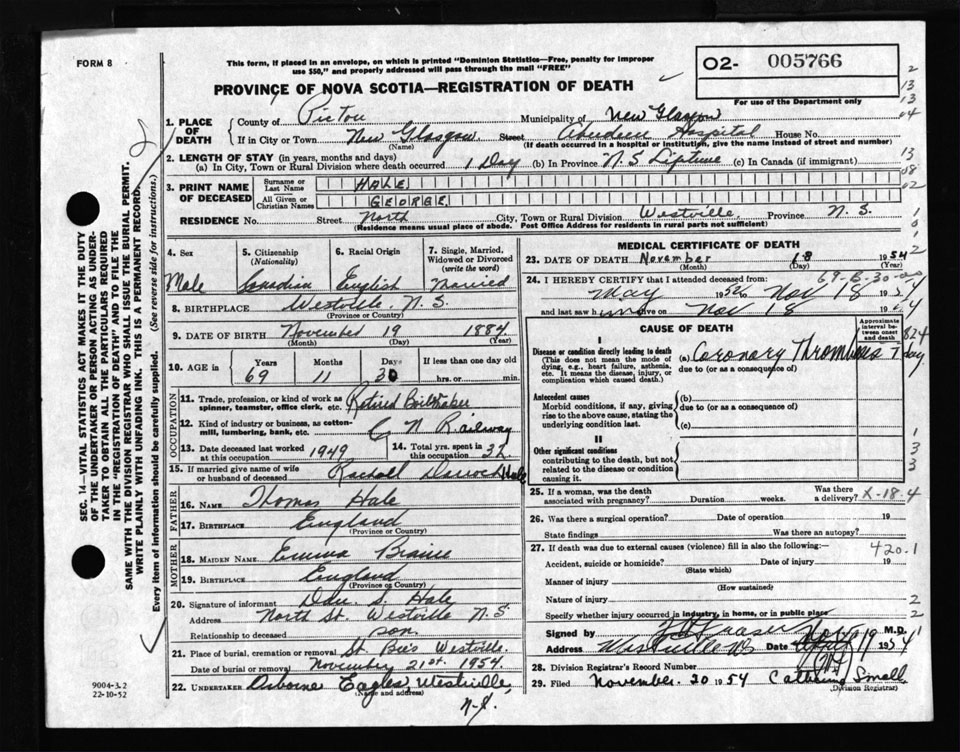 FORM 8
This form, if placed in an envelope, on which is printed "Dominion Statistics—Free, penalty for improper
use $50," and properly addressed will pass through the mail "FREE"
O2- 005766
For use of the Department only
PROVINCE OF NOVA SCOTIA—REGISTRATION OF DEATH
1. PLACE OF DEATH
County of Pictou Municipality of New Glasgow
If in City or Town New Glasgow Street Aberdeen Hospital House No.
(Name) (If death occurred in a hospital or institution, give the name instead of street and number)
2. LENGTH OF STAY (in years, months and days)
(a) In City, Town or Rural Division where death occurred 1 Day (b) In Province N.S Liptime (c) In Canada (if immigrant)
3. PRINT NAME OF DECEASED
Surname or Last Name HALE
All Given or Christian Names GEORGE
RESIDENCE No. Street North City, Town or Rural Division Westville Province N.S.
(Residence means usual place of abode. Post Office Address for residents in rural parts not sufficient)
4. Sex Male
5. Citizenship (Nationality) Canadian
6. Racial Origin English
7. Single, Married, Widowed or Divorced (write the word) Married
8. BIRTHPLACE Westville N.S.
(Province or Country)
9. DATE OF BIRTH November 19 1884
(Month) (Day) (Year)
10. AGE in Years 69 Months 11 Days 30 If less than one day old hrs. or min.
OCCUPATION
11. Trade, profession, or kind of work as spinner, teamster, office clerk, etc. Retired Boilmaker
12. Kind of industry or business, as cotton-mill, lumbering, bank, etc. C N Railway
13. Date deceased last worked at this occupation 1949
14. Total yrs. spent in this occupation 32
15. If married give name of wife or husband of deceased Rachael Hale
FATHER
16. NAME Thomas Hale
17. BIRTHPLACE England
(Province or Country)
MOTHER
18. MAIDEN NAME Emma
19. BIRTHPLACE England
(Province or Country)
20. Signature of informant Dan. S. Hale
Address North St. Westville N.S
Relationship to deceased son.
21. Place of burial, cremation or removal St. Bee's Westville.
Date of burial or removal November 21st. 1954.
22. UNDERTAKER Osborne Eagles, Westville, N.S.
(Name and address)
MEDICAL CERTIFICATE OF DEATH
23. DATE OF DEATH November 18 1954
(Month) (Day) (Year)
24. I HEREBY CERTIFY that I attended deceased from:
May 1952 to Nov 18 1954
and last saw him alive on Nov 18 1954
CAUSE OF DEATH
Approximate interval between onset and death
I
Disease or condition directly leading to death (a) Coronary Thrombosis 1 day
(This does not mean the mode of dying, e.g., heart failure, asthenia, etc. It means the disease, injury, or complication which caused death.)
due to (or as a consequence of)
Antecedent causes
Morbid conditions, if any, giving rise to the above cause, stating the underlying condition last.
(b)
due to (or as a consequence of)
(c)
II
Other significant conditions
contributing to the death, but not related to the disease or condition causing it.
25. If a woman, was the death associated with pregnancy? Duration weeks. Was there a delivery? X-18-4
26. Was there a surgical operation? Date of operation 19
State findings Was there an autopsy?
27. If death was due to external causes (violence) fill in also the following:— 420.1
Accident, suicide or homicide? Date of injury 19
(State which)
Manner of injury
(How sustained)
Nature of injury
Specify whether injury occurred in industry, in home, or in public place
Signed by M.D.
Address Westville NS Date Nov 19 1954
28. Division Registrar's Record Number
29. Filed November. 20 1954 Catherine Small
(Division Registrar)
SEC. 14—VITAL STATISTICS ACT MAKES IT THE DUTY
OF THE UNDERTAKER OR PERSON ACTING AS UNDERTAKER
TO OBTAIN ALL THE PARTICULARS REQUIRED
IN THE "REGISTRATION OF DEATH" AND TO FILE THE
SAME WITH THE DIVISION REGISTRAR WHO SHALL ISSUE THE BURIAL PERMIT.
WRITE PLAINLY WITH UNFADING INK. THIS IS A PERMANENT RECORD.
Every item of information should be carefully supplied. (See reverse side for instructions.)
9004-3.2
22-10-52